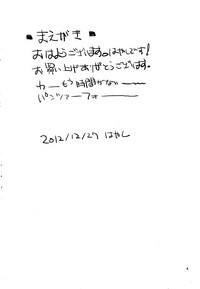 ■まえがき■
おはようございます。はやしです!
お買い上げありがとうございます。
カーーもう時間がないーーー
パンツァーフォーーーー
2012/12/27 はやし